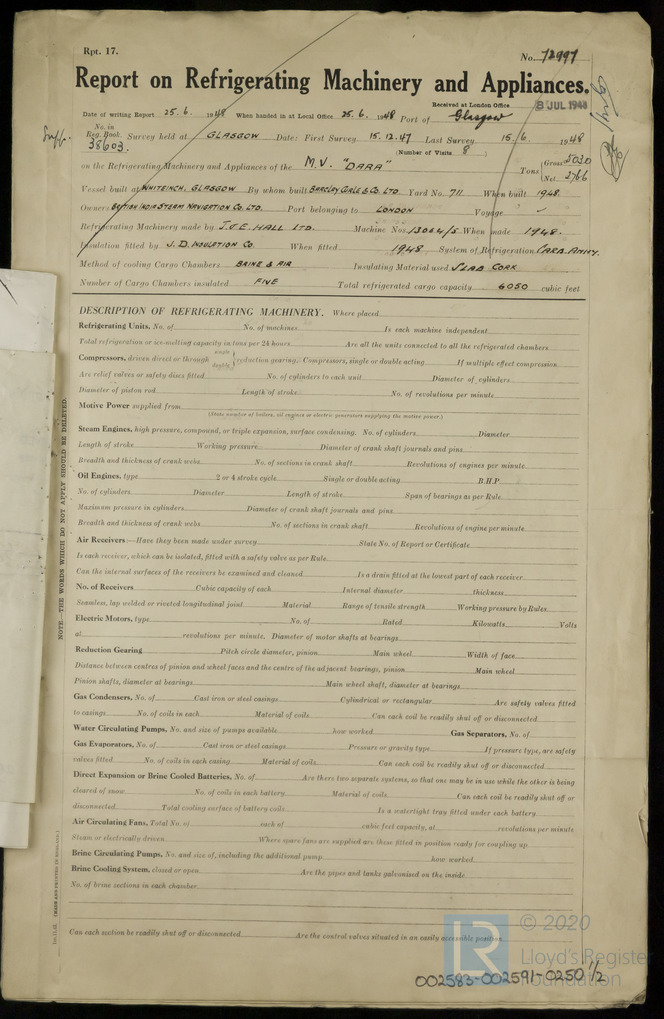 Rpt. 17.
No. 72997
Report on Refrigerating Machinery and Appliances.
Received at London Office 8 JUL 1948
Date of writing Report 25.6. 1948 When handed in at Local Office 25.6. 1948 Port of Glasgow
No. in Reg. Book. Survey held at GLASGOW Date: First Survey 15.12.47 Last Survey 15.6. 1948
38603. (Number of Visits 8)
on the Refrigerating Machinery and Appliances of the M.V. "DARA" Tons Gross 5030 Net 2766
Vessel built at WHITEINCH, GLASGOW By whom built BARCLAY CURLE & CO. LTD. Yard No. 711 When built 1948
Owners BRITISH INDIA STEAM NAVIGATION CO. LTD. Port belonging to LONDON Voyage
Refrigerating Machinery made by J. & E. HALL LTD. Machine Nos. 13064/5 When made 1948.
Insulation fitted by J.D. INSULATION CO. When fitted 1948 System of Refrigeration CARB. ANHY.
Method of cooling Cargo Chambers BRINE & AIR Insulating Material used SLAB CORK
Number of Cargo Chambers insulated FIVE Total refrigerated cargo capacity 6050 cubic feet
DESCRIPTION OF REFRIGERATING MACHINERY. Where placed
Refrigerating Units, No. of No. of machines Is each machine independent
Total refrigeration or ice-melting capacity in tons per 24 hours Are all the units connected to all the refrigerated chambers
Compressors, driven direct or through single double reduction gearing. Compressors, single or double acting If multiple effect compression
Are relief valves or safety discs fitted No. of cylinders to each unit Diameter of cylinders
Diameter of piston rod Length of stroke No. of revolutions per minute
Motive Power supplied from
(State number of boilers, oil engines or electric generators supplying the motive power.)
Steam Engines, high pressure, compound, or triple expansion, surface condensing. No. of cylinders Diameter
Length of stroke Working pressure Diameter of crank shaft journals and pins
Breadth and thickness of crank webs No. of sections in crank shaft Revolutions of engines per minute
Oil Engines, type 2 or 4 stroke cycle Single or double acting B.H.P.
No. of cylinders Diameter Length of stroke Span of bearings as per Rule
Maximum pressure in cylinders Diameter of crank shaft journals and pins
Breadth and thickness of crank webs No. of sections in crank shaft Revolutions of engine per minute
Air Receivers:—Have they been made under survey State No. of Report or Certificate
Is each receiver, which can be isolated, fitted with a safety valve as per Rule
Can the internal surfaces of the receivers be examined and cleaned Is a drain fitted at the lowest part of each receiver
No. of Receivers Cubic capacity of each Internal diameter thickness
Seamless, lap welded or riveted longitudinal joint Material Range of tensile strength Working pressure by Rules
Electric Motors, type No. of Rated Kilowatts Volts
at revolutions per minute. Diameter of motor shafts at bearings
Reduction Gearing Pitch circle diameter, pinion Main wheel Width of face
Distance between centres of pinion and wheel faces and the centre of the adjacent bearings, pinion Main wheel
Pinion shafts, diameter at bearings Main wheel shaft, diameter at bearings
Gas Condensers, No. of Cast iron or steel casings Cylindrical or rectangular Are safety valves fitted
to casings No. of coils in each Material of coils Can each coil be readily shut off or disconnected
Water Circulating Pumps, No. and size of pumps available how worked Gas Separators, No. of
Gas Evaporators, No. of Cast iron or steel casings Pressure or gravity type If pressure type, are safety
valves fitted No. of coils in each casing Material of coils Can each coil be readily shut off or disconnected
Direct Expansion or Brine Cooled Batteries, No. of Are there two separate systems, so that one may be in use while the other is being
cleared of snow No. of coils in each battery Material of coils Can each coil be readily shut off or
disconnected Total cooling surface of battery coils Is a watertight tray fitted under each battery
Air Circulating Fans, Total No. of each of cubic feet capacity, at revolutions per minute
Steam or electrically driven Where spare fans are supplied are these fitted in position ready for coupling up
Brine Circulating Pumps, No. and size of, including the additional pump how worked
Brine Cooling System, closed or open Are the pipes and tanks galvanised on the inside
No. of brine sections in each chamber
Can each section be readily shut off or disconnected Are the control valves situated in an easily accessible position
NOTE.—THE WORDS WHICH DO NOT APPLY SHOULD BE DELETED.
(MADE AND PRINTED IN ENGLAND.)
LR
© 2020
Lloyd's Register
Foundation
002583-002591-0250 1/2